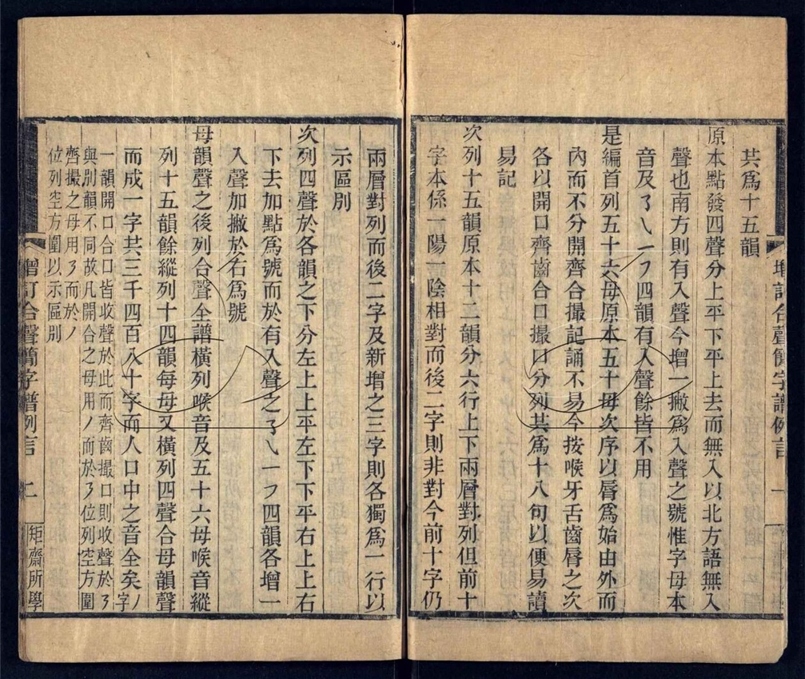 其爲十五韻
原本點發四聲分上平下平上去而無入以北方語無入
聲也南方則有入聲今增一撇爲入聲之號惟字母本
音及了乀一フ四韻有入聲餘皆不用
是編首列五十六母原本五十母次序以脣爲始由外而
內而不分開齊合撮記誦不易今按喉牙舌齒脣之次
各以開口齊齒合口撮口分列其爲十八句以便易讀
易記
次列十五韻原本十二韻分六行上下兩層對列但前十
字本係一陽一陰相對而後二字則非對今前十字仍
增訂合聲簡字譜例言 一
兩層對列而後二字及新增之三字則各獨爲一行以
示區別
次列四聲於各韻之下分左上上平左下下平右上上右
下去加點爲號而於有入聲之了乀一フ四韻各增一
入聲加撇於右爲號
母韻聲之後列合聲全譜橫列喉音及五十六母喉音縱
列十五韻餘縱列十四韻每母又橫列四聲合母韻聲
而成一字共三千四百八十字而人口中之音全矣ノ字
一韻開口合口皆收聲於此而齊齒撮口則收聲於了
與別韻不同故凡開合之母用ノ而於了位列空方圍
齊撮之母用了而於ノ
位列空方圍以示區別
增訂合聲簡字譜例言 二
矩齋所學